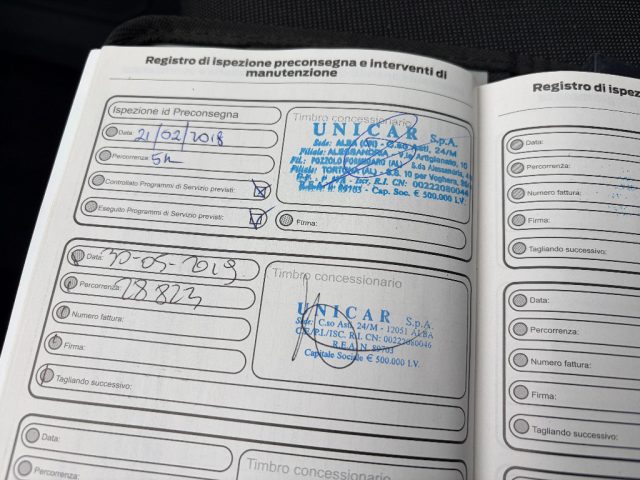 Registro di ispezione preconsegna e interventi di
manutenzione
Ispezione id Preconsegna
Data: 21/02/2018
Percorrenza:
Controllato Programmi di Servizio previsti:
Eseguito Programmi di Servizio previsti:
Timbro concessionario
UNICAR S.p.A.
Sede: ALBA (CN) - C.so Asti, 24/M
Filiale: ALESSANDRIA - V.le Artigianato, 10
Fil.: POZZOLO FORMIGARO (AL) - S.da Alessandria,
Filiale: TORTONA (AL) - S.S. 10 per Voghera,
Iscr. R.I. CN: 00222080046
R.E.A. n. 89703 - Cap. Soc. € 500.000 I.V.
Firma:
Data: 30-05-2019
Percorrenza: 28823
Numero fattura:
Firma:
Tagliando successivo:
Timbro concessionario
UNICAR S.p.A.
Sede: C.so Asti, 24/M - 12051 ALBA
C.F./P.I./ISC. R.I. CN: 00222080046
R.E.A. N. 89703
Capitale Sociale € 500.000 I.V.
Data:
Percorrenza:
Timbro concessionario
Registro di
Data:
Percorrenza:
Numero fattura:
Firma:
Tagliando successivo:
Data:
Percorrenza:
Numero fattura:
Firma:
Tagliando successivo: